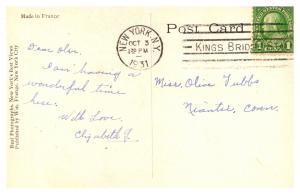 Made in France
Post Card
NEW YORK, N.Y.
OCT 3
PM
1931
KINGS BRIDGE
1 1
Dear Olive,
I am having a
wonderful time
here.
With Love,
Elizabeth
Miss. Olive Tubbs
Niantic, Conn.
Real Photographs, New York's Best Views
Published by Wm. Frange, New York City